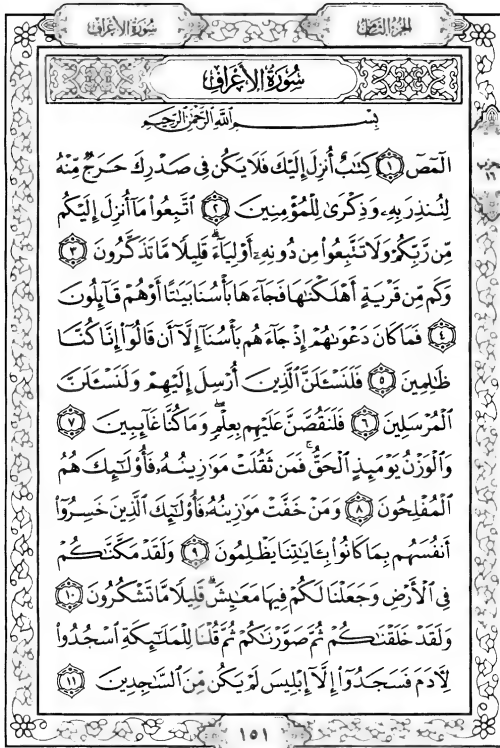 سُورَةُ الأَعْرَافِ الجُزْءُ الثَّامِنُ
سُورَةُ الأَعْرَافِ
بِسْمِ ٱللَّهِ ٱلرَّحْمَٰنِ ٱلرَّحِيمِ
الٓمٓصٓ ١ كِتَٰبٌ أُنزِلَ إِلَيْكَ فَلَا يَكُن فِى صَدْرِكَ حَرَجٌ مِّنْهُ
لِتُنذِرَ بِهِۦ وَذِكْرَىٰ لِلْمُؤْمِنِينَ ٢ ٱتَّبِعُوا۟ مَآ أُنزِلَ إِلَيْكُم
مِّن رَّبِّكُمْ وَلَا تَتَّبِعُوا۟ مِن دُونِهِۦٓ أَوْلِيَآءَ ۗ قَلِيلًا مَّا تَذَكَّرُونَ ٣
وَكَم مِّن قَرْيَةٍ أَهْلَكْنَٰهَا فَجَآءَهَا بَأْسُنَا بَيَٰتًا أَوْ هُمْ قَآئِلُونَ
٤ فَمَا كَانَ دَعْوَىٰهُمْ إِذْ جَآءَهُم بَأْسُنَآ إِلَّآ أَن قَالُوٓا۟ إِنَّا كُنَّا
ظَٰلِمِينَ ٥ فَلَنَسْـَٔلَنَّ ٱلَّذِينَ أُرْسِلَ إِلَيْهِمْ وَلَنَسْـَٔلَنَّ
ٱلْمُرْسَلِينَ ٦ فَلَنَقُصَّنَّ عَلَيْهِم بِعِلْمٍ ۖ وَمَا كُنَّا غَآئِبِينَ ٧
وَٱلْوَزْنُ يَوْمَئِذٍ ٱلْحَقُّ ۚ فَمَن ثَقُلَتْ مَوَٰزِينُهُۥ فَأُو۟لَٰٓئِكَ هُمُ
ٱلْمُفْلِحُونَ ٨ وَمَنْ خَفَّتْ مَوَٰزِينُهُۥ فَأُو۟لَٰٓئِكَ ٱلَّذِينَ خَسِرُوٓا۟
أَنفُسَهُم بِمَا كَانُوا۟ بِـَٔايَٰتِنَا يَظْلِمُونَ ٩ وَلَقَدْ مَكَّنَّٰكُمْ
فِى ٱلْأَرْضِ وَجَعَلْنَا لَكُمْ فِيهَا مَعَٰيِشَ ۗ قَلِيلًا مَّا تَشْكُرُونَ ١٠
وَلَقَدْ خَلَقْنَٰكُمْ ثُمَّ صَوَّرْنَٰكُمْ ثُمَّ قُلْنَا لِلْمَلَٰٓئِكَةِ ٱسْجُدُوا۟
لِـَٔادَمَ فَسَجَدُوٓا۟ إِلَّآ إِبْلِيسَ لَمْ يَكُن مِّنَ ٱلسَّٰجِدِينَ ١١
حزب
١٦
١٥١